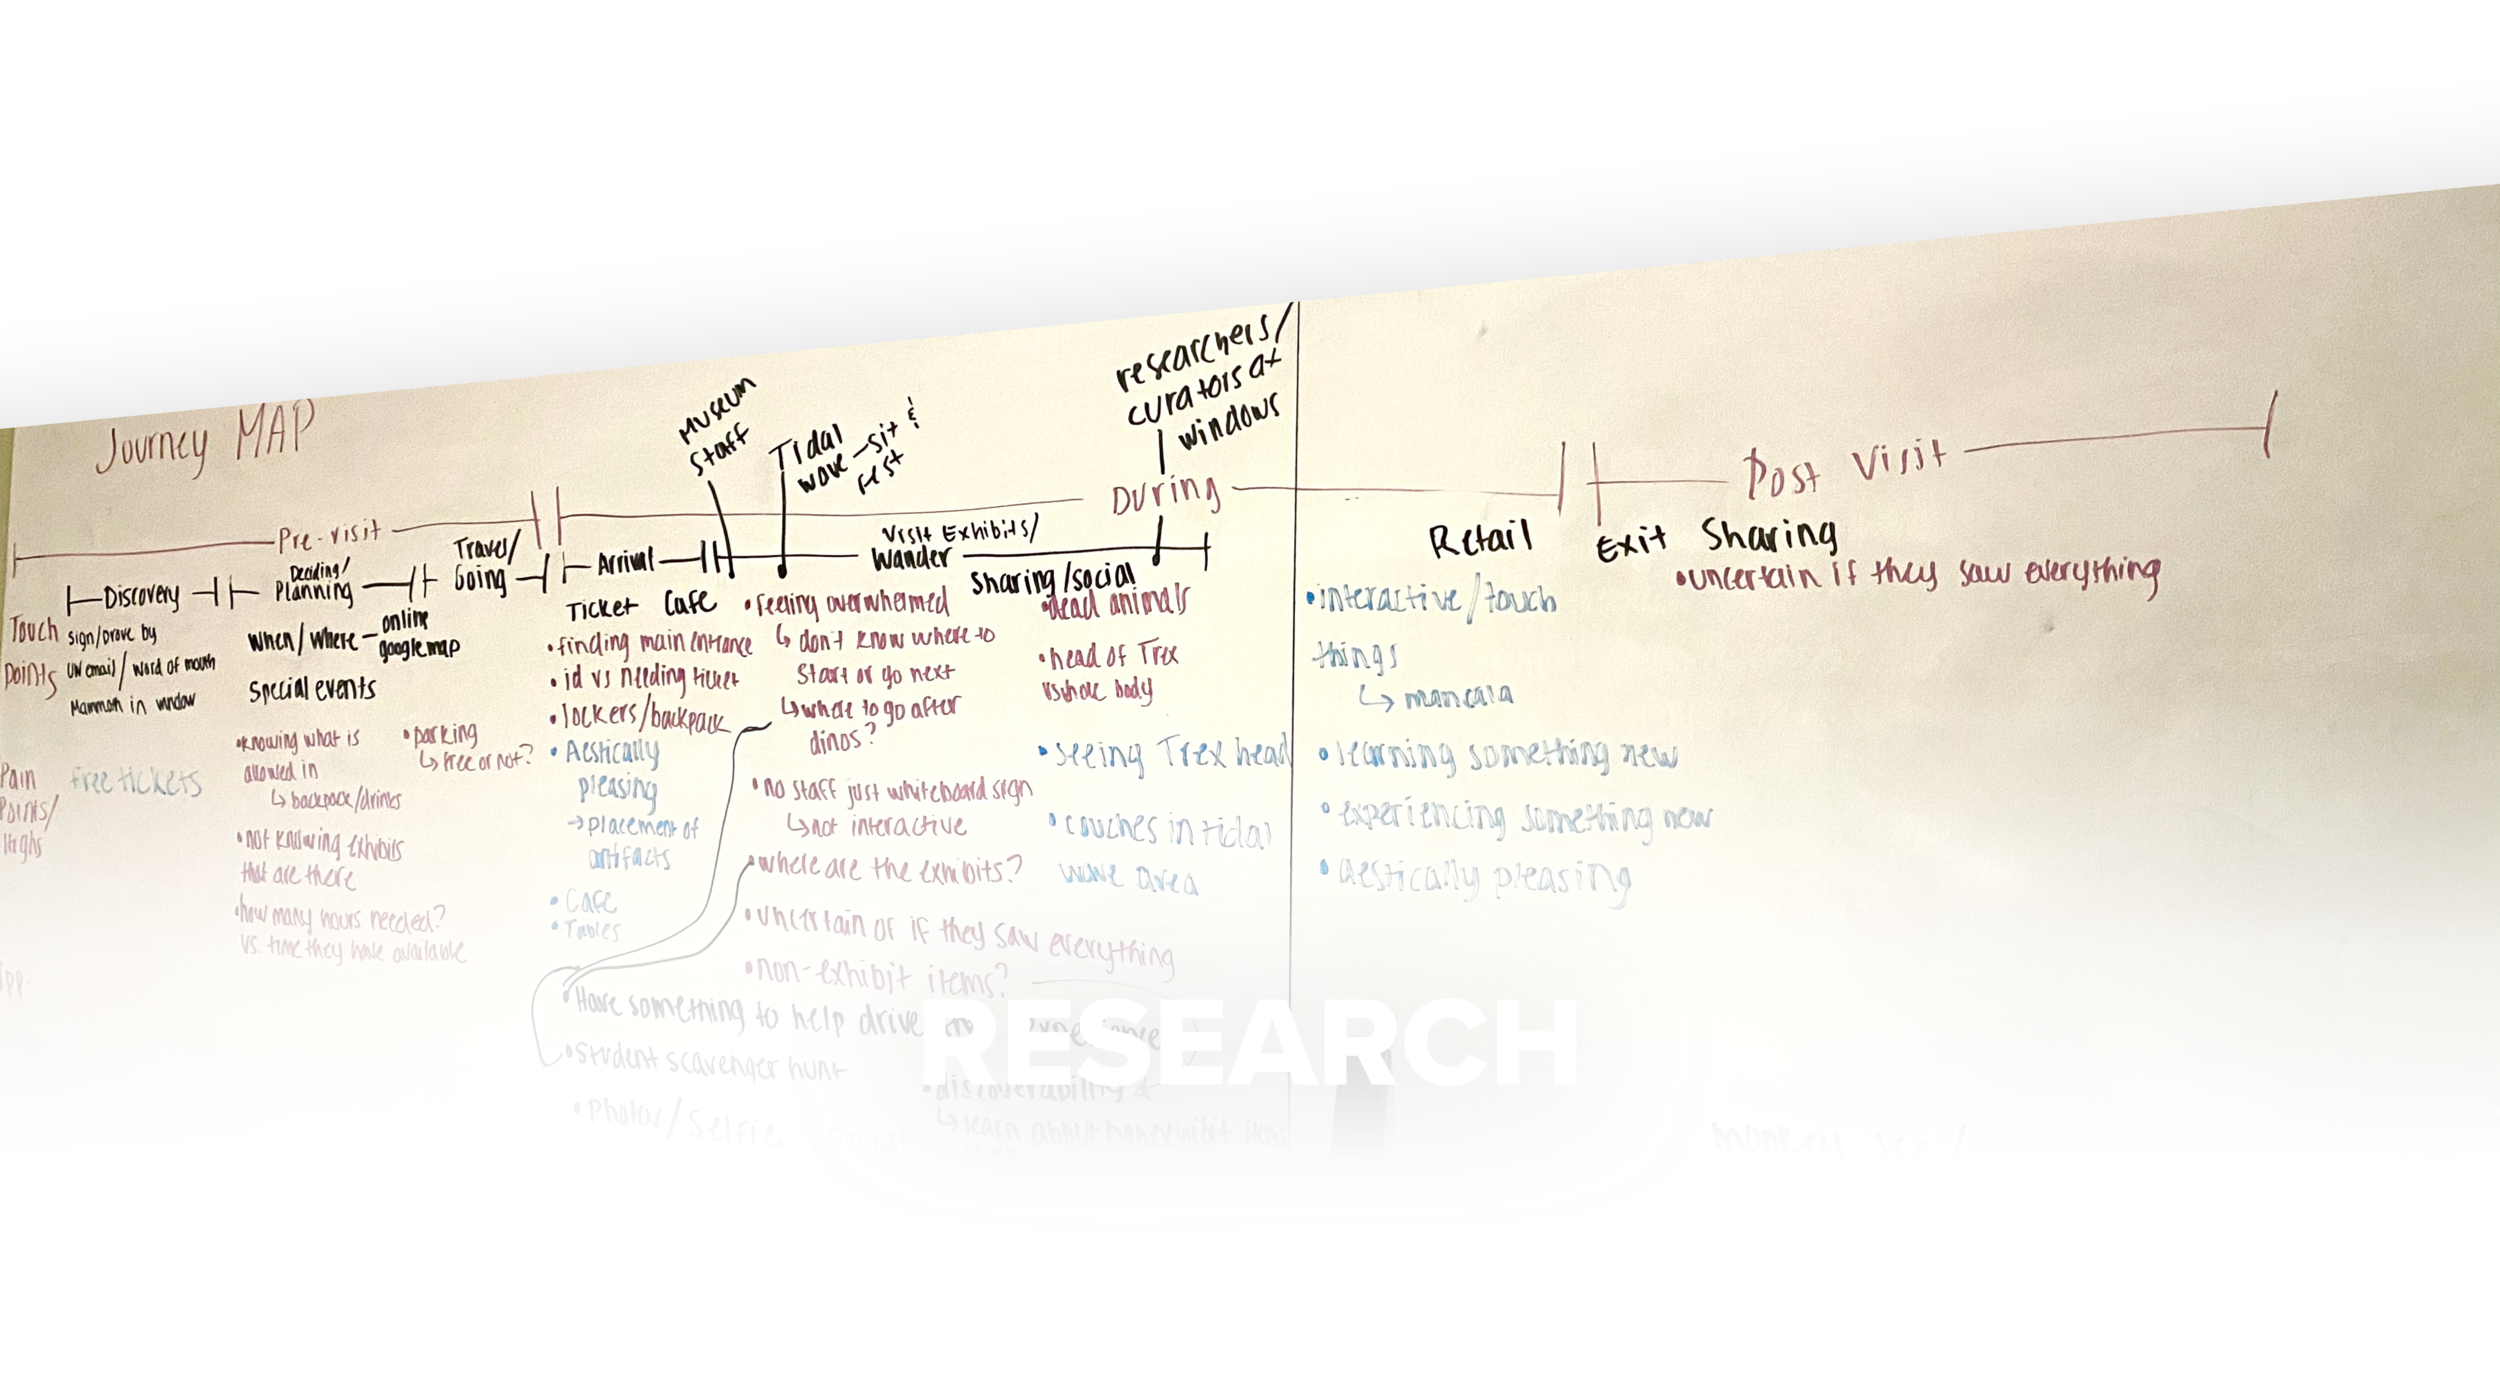 Journey MAP
Museum
staff
Tidal
wave - sit &
rest
researchers/
curators at
windows
Pre-visit
During
Post Visit
Discovery
Deciding/
Planning
Travel/
Going
Arrival
Visit Exhibits/
Wander
Sharing/social
Retail
Exit Sharing
Touch
Points
sign/drove by
UW email/ word of mouth
Mammoth in window
When/Where - online
google map
Special events
Ticket Cafe
Pain
Points/
Highs
free tickets
•knowing what is
allowed in
↳ backpack/drinks
•not knowing exhibits
that are there
•how many hours needed?
vs. time they have available
•parking
↳ free or not?
•finding main entrance
•id vs needing ticket
•lockers/backpack
•Aestically
pleasing
→placement of
artifacts
•Cafe
•Tables
•feeling overwhelmed
↳ don't know where to
start or go next
↳where to go after
dinos?
•no staff just whiteboard sign
↳not interactive
•where are the exhibits?
•uncertain of if they saw everything
•non-exhibit items?
•dead animals
•head of Trex
vs whole body
•seeing Trex head
•couches in tidal
wave area
•interactive/touch
things
↳ mancala
•learning something new
•experiencing something new
•aestically pleasing
•uncertain if they saw everything
opp-
•Have something to help drive experience
•Student scavenger hunt
•Photos/Selfie
•discoverability
↳learn about nonexhibit items
RESEARCH